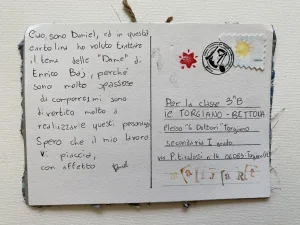 Ciao, sono Daniel, ed in questa
cartolina ho voluto trattare
il tema delle "Dame" di
Enrico Baj, perché
sono molto spassose
da comporre, mi sono
divertito molto a
realizzare questi personaggi.
Spero che il mio lavoro
Vi piaccia,
con affetto
Per la classe 3°B
IC TORGIANO-BETTONA
Plesso "G. Dottori" Torgiano
secondaria I grado
via P. Tiradossi n°14 06089-Torgiano